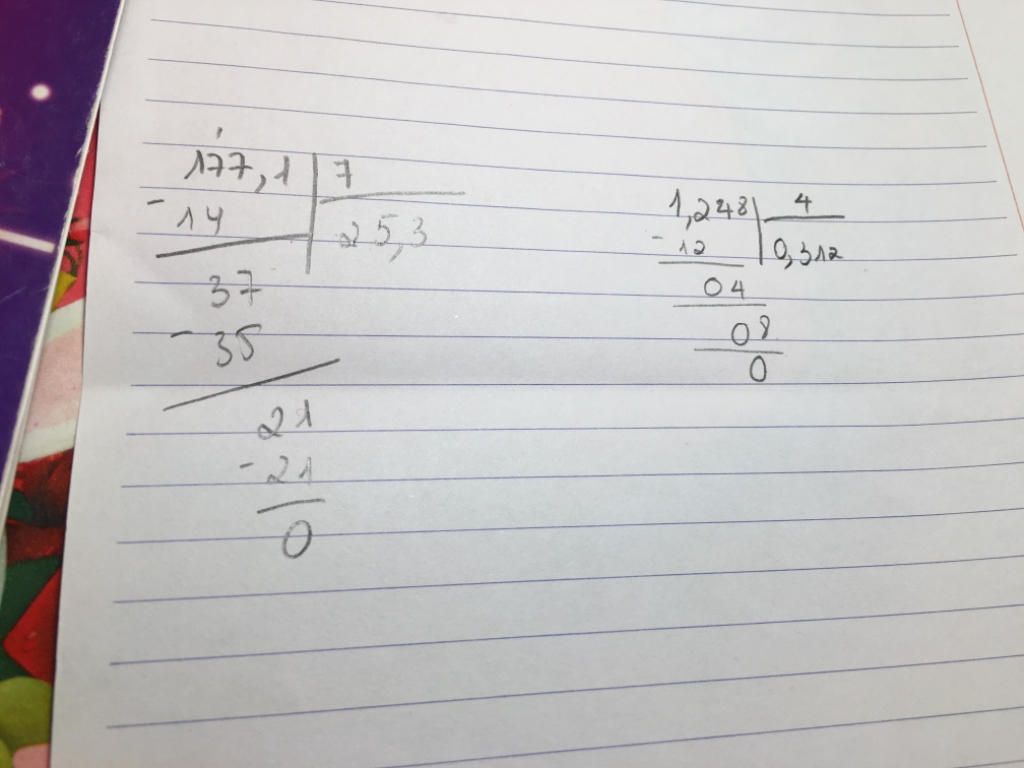 177,1 7
- 14 25,3
37
- 35
21
- 21
0
1,248 4
- 12 0,312
04
08
0